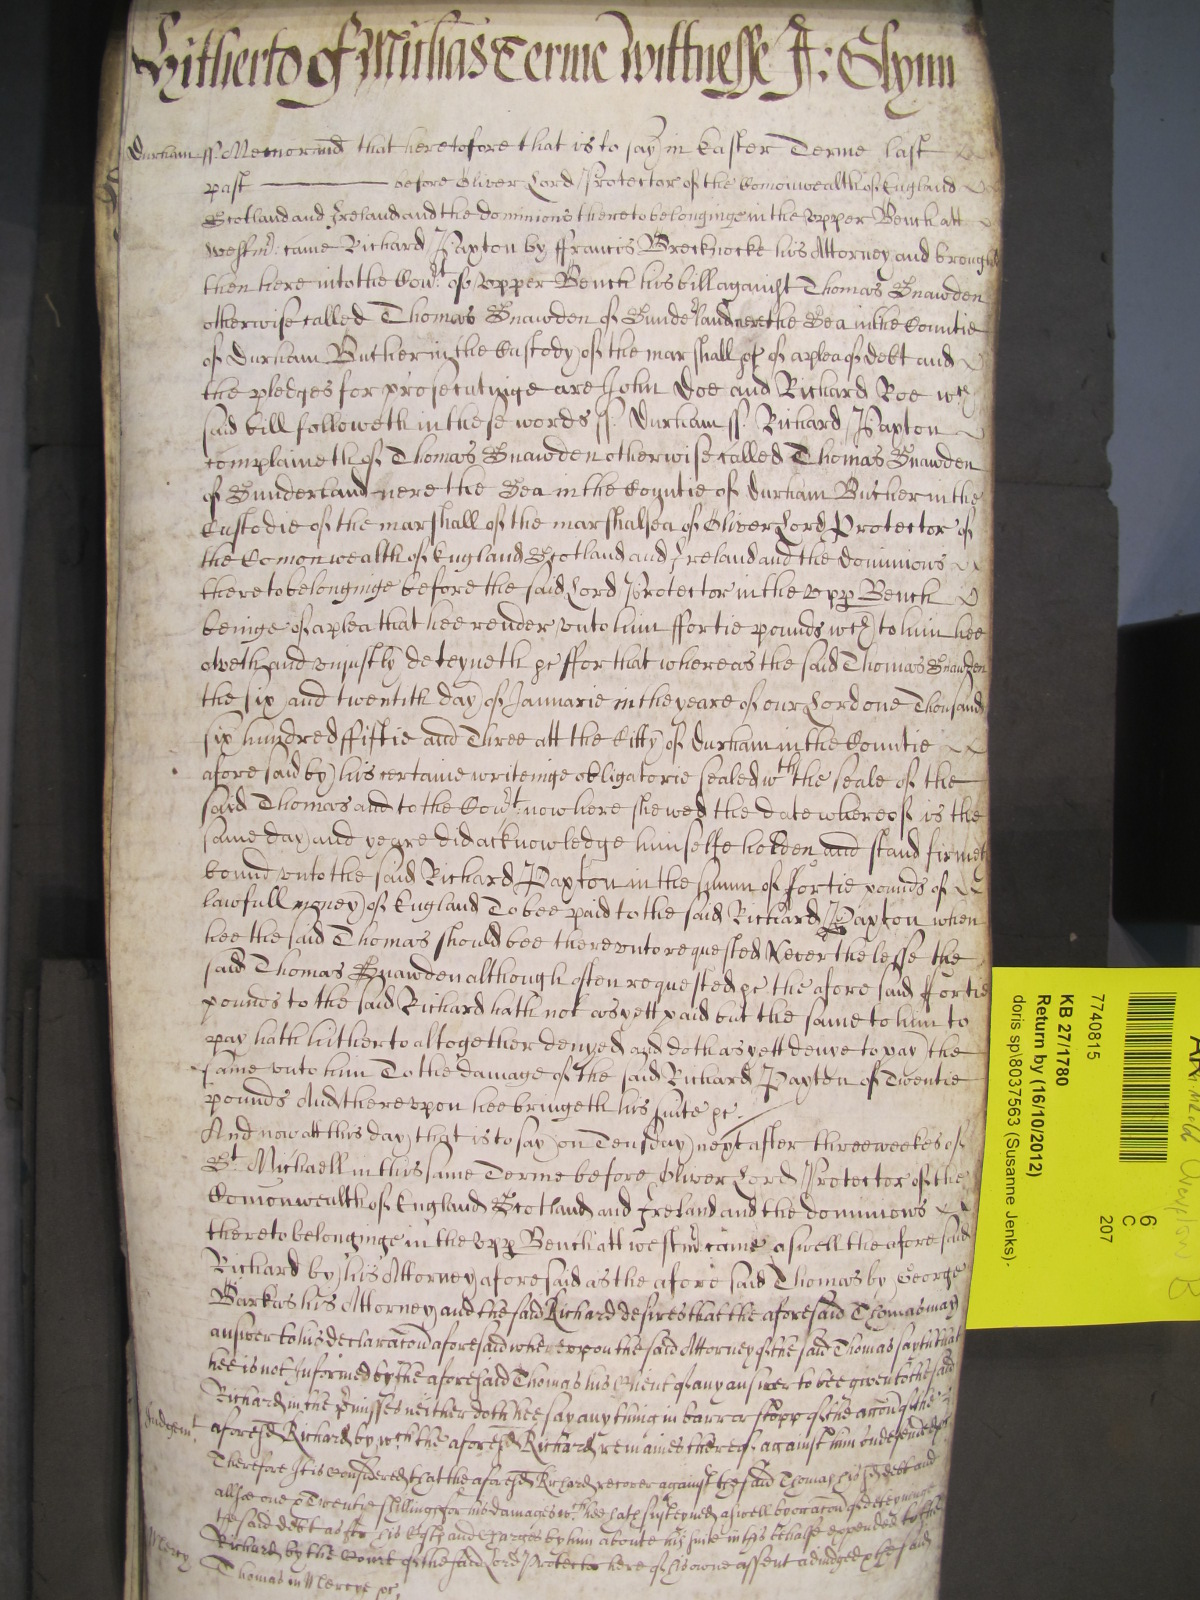 Hitherto of Michas Terme Wittnesse J: Glynn
Durham ss. Memorand that heretofore that is to say in Easter Terme last
past before Oliver Lord Protector of the Comonwealth of England
Scotland and Ireland and the dominions thereto belonginge in the vpper Bench att
Westmr: came Richard Paxton by ffrancis Brecknocke his Attorney and brought
then here into the Court of vpper Bench his bill against Thomas Snawden
otherwise called Thomas Snawden of Sunderland nere the Sea in the Countie
of Durham Butcher in the Custody of the marshall &c of a plea of debt and
the pledges for prosecutinge are John Doe and Richard Roe wch
said bill followeth in these words ss. Durham ss. Richard Paxton
complaineth of Thomas Snawden otherwise called Thomas Snawden
of Sunderland nere the Sea in the Countie of Durham Butcher in the
Custodie of the marshall of the marshalsea of Oliver Lord Protector of
the Comonwealth of England Scotland and Ireland and the dominions
thereto belonginge before the said Lord Protector in the vpp Bench
beinge of a plea that hee render vnto him ffortie pounds wch to him hee
oweth and vniustly deteyneth &c ffor that whereas the said Thomas Snawden
the six and twentith day of Januarie in the yeare of our Lord one Thousand
six hundred ffiftie and Three att the Citty of Durham in the Countie
aforesaid by his certaine writeinge obligatorie sealed wth the seale of the
said Thomas and to the Court now here shewed the date whereof is the
same day and yeare did acknowledge himselfe holden and stand firmely
bound vnto the said Richard Paxton in the summ of fortie pounds of
lawfull money of England To bee paid to the said Richard Paxton when
hee the said Thomas should bee therevnto requested Neverthelesse the
said Thomas Snawden although often requested &c the afore said ffortie
pounds to the said Richard hath not as yett paid but the same to him to
pay hath hitherto altogether denyed and doth as yett denye to pay the
same vnto him To the damage of the said Richard Paxton of Twentie
pounds And therevpon hee bringeth his suite &c
And now att this day that is to say on Teusday next after three weekes of
St Michaell in this same Terme before Oliver Lord Protector of the
Comonwealth of England Scotland and Ireland and the dominions
thereto belonginge in the vpp Bench att westmr came aswell the afore said
Richard by his Attorney aforesaid as the afore said Thomas by George
Barkas his Attorney and the said Richard desires that the aforesaid Thomas may
answer to his declaracon aforesaid wherevpon the said Attorney of the said Thomas sayth that
hee is not Informed by the aforesaid Thomas his Client of any answer to bee given to the said
Richard in the pmisses neither doth hee say any thing in barr or stopp of the accon of the
Judgemt aforesd Richard by wch the aforesd Richard remaines thereof against him vndefended &c
Therefore It is Considered that the aforesd Richard recover against the said Thomas his sd debt and
allsoe one & Twentie shillings for his damages wch hee hath susteyned aswell by occacon of deteyninge
the said debt as for his costs and Charges by him aboute his suite in this behalfe expended to the said
Richard by the Court of the said Lord Protector here of his owne assent adiudged & the said
Mercy Thomas in Mercye &c.
7740815
KB 27/1780
Return by (16/10/2012)
doris sp\8037563 (Susanne Jenks)
6
C
207